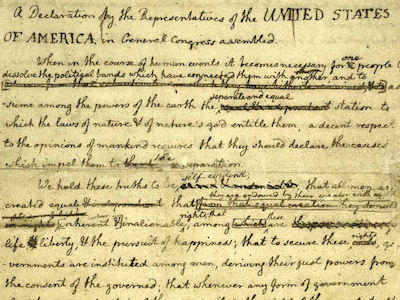 A Declaration by the Representatives of the UNITED STATES
OF AMERICA, in General Congress assembled.
When in the course of human events it becomes necessary for one people to
dissolve the political bands which have connected them with another, and to
as-
separate and equal
sume among the powers of the earth the station to
which the laws of nature & of nature's god entitle them, a decent respect
to the opinions of mankind requires that they should declare the causes
which impel them to the separation.
self evident,
We hold these truths to be that all men are
created equal that
they are endowed by their creator with
rights; that
inherent & inalienable, among which these are
rights
life & liberty, & the pursuit of happiness; that to secure these go-
vernments are instituted among men, deriving their just powers from
the consent of the governed; that whenever any form of government